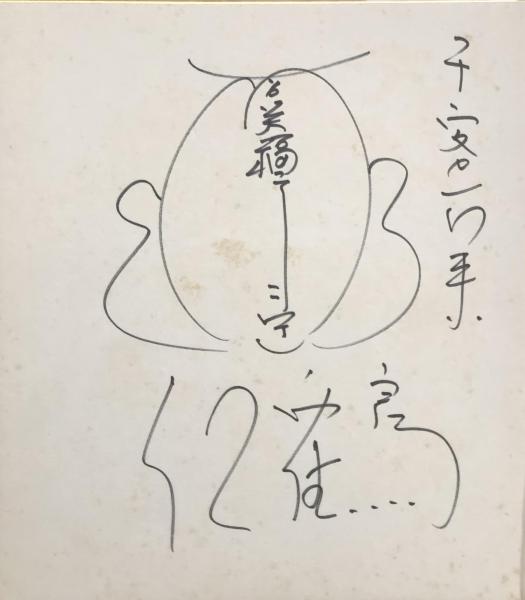 千客万来
笑福亭
仁鶴